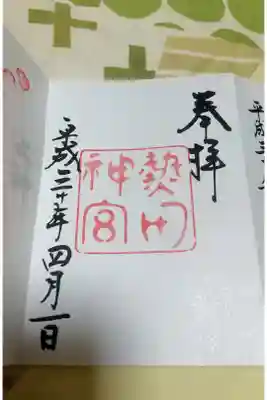 奉拝
熱田
神宮
平成三十年四月一日
平成三十